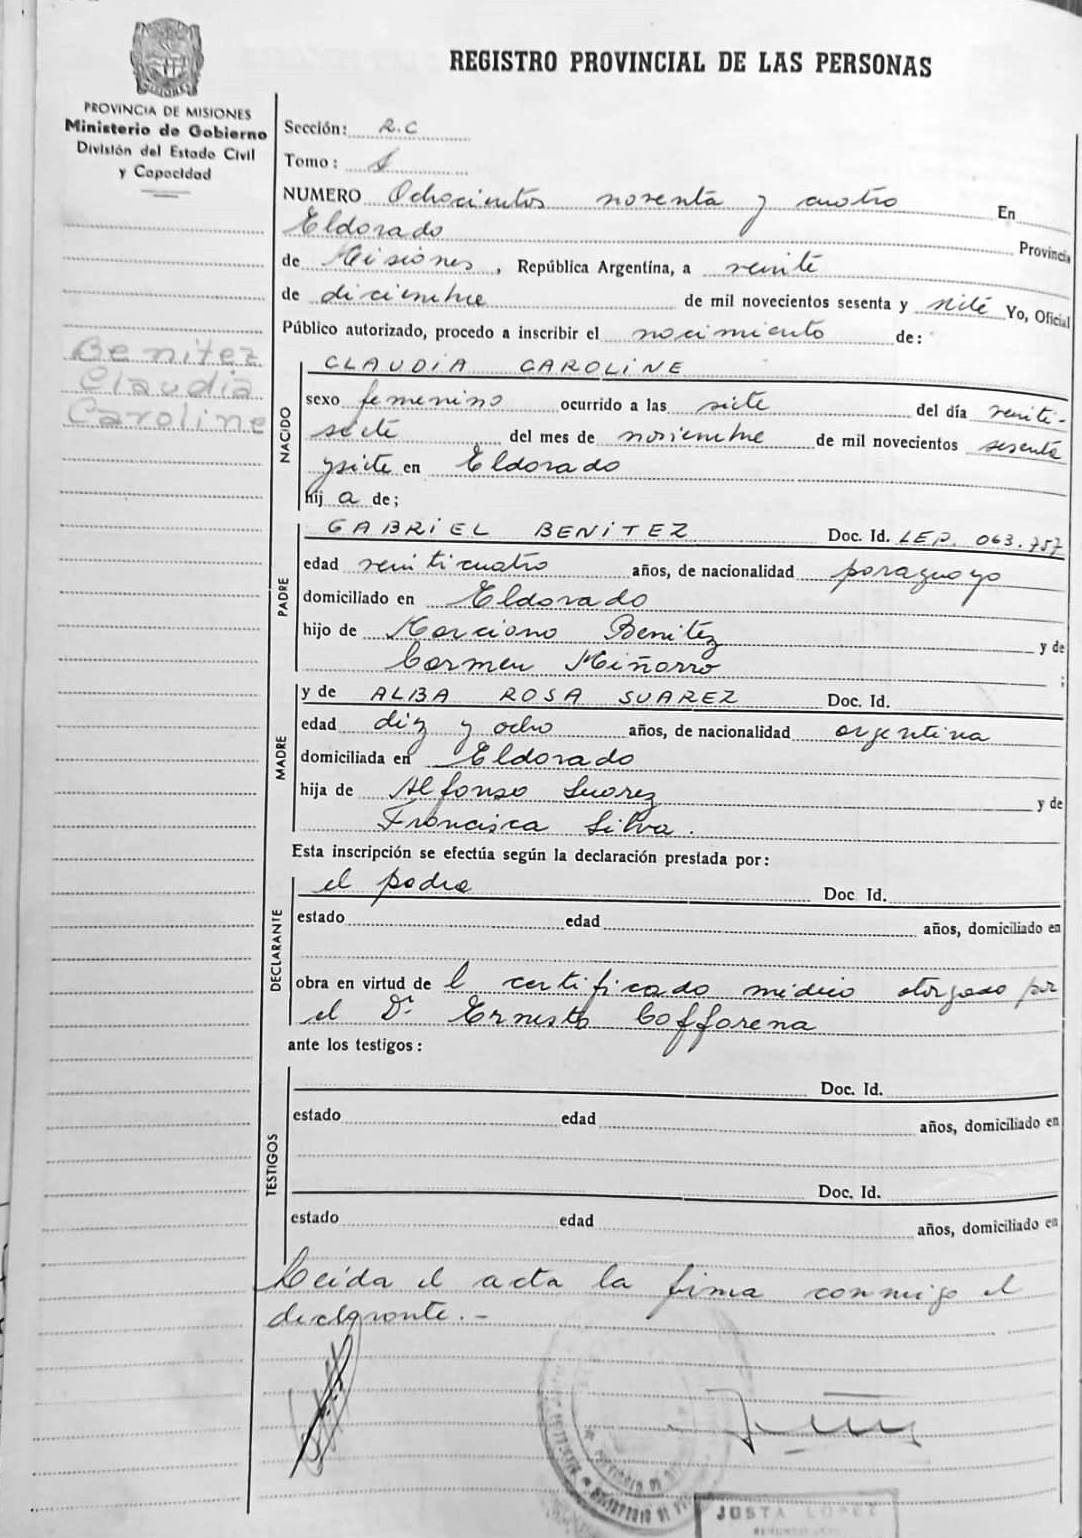 REGISTRO PROVINCIAL DE LAS PERSONAS
PROVINCIA DE MISIONES
Ministerio de Gobierno
División del Estado Civil
y Capacidad
Benitez
Claudia
Caroline
Sección: R.C
Tomo:
NUMERO Ochocientos noventa y cuatro En
Eldorado Provincia
de Misiones, República Argentina, a veinte
de diciembre de mil novecientos sesenta y siete Yo, Oficial
Público autorizado, procedo a inscribir el nacimiento de:
NACIDO
CLAUDIA CAROLINE
sexo femenino ocurrido a las siete del día veinti-
siete del mes de noviembre de mil novecientos sesenta
y siete en Eldorado
hij a de;
PADRE
GABRIEL BENITEZ Doc. Id. LEP. 063.757
edad veinticuatro años, de nacionalidad paraguayo
domiciliado en Eldorado
hijo de Marciano Benitez y de
Carmen Miñarro ;
MADRE
y de ALBA ROSA SUAREZ Doc. Id.
edad diez y ocho años, de nacionalidad argentina
domiciliada en Eldorado
hija de Alfonso Suarez y de
Francisca Silva.
Esta inscripción se efectúa según la declaración prestada por:
DECLARANTE
el padre Doc Id.
estado edad años, domiciliado en
obra en virtud de l certificado médico otorgado por
el Dr. Ernesto
ante los testigos:
TESTIGOS
Doc. Id.
estado edad años, domiciliado en
Doc. Id.
estado edad años, domiciliado en
Leida el acta la firma conmigo el
declarante.-
JUSTA LOPEZ